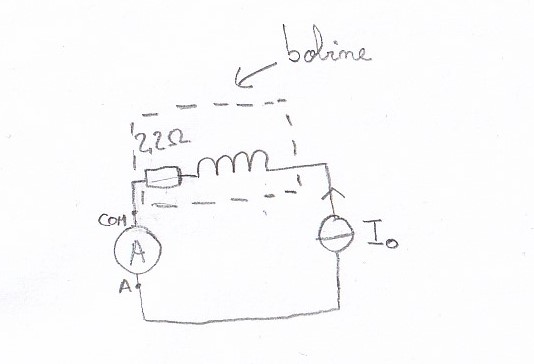 bobine
2,2Ω
COM
A
I₀
A